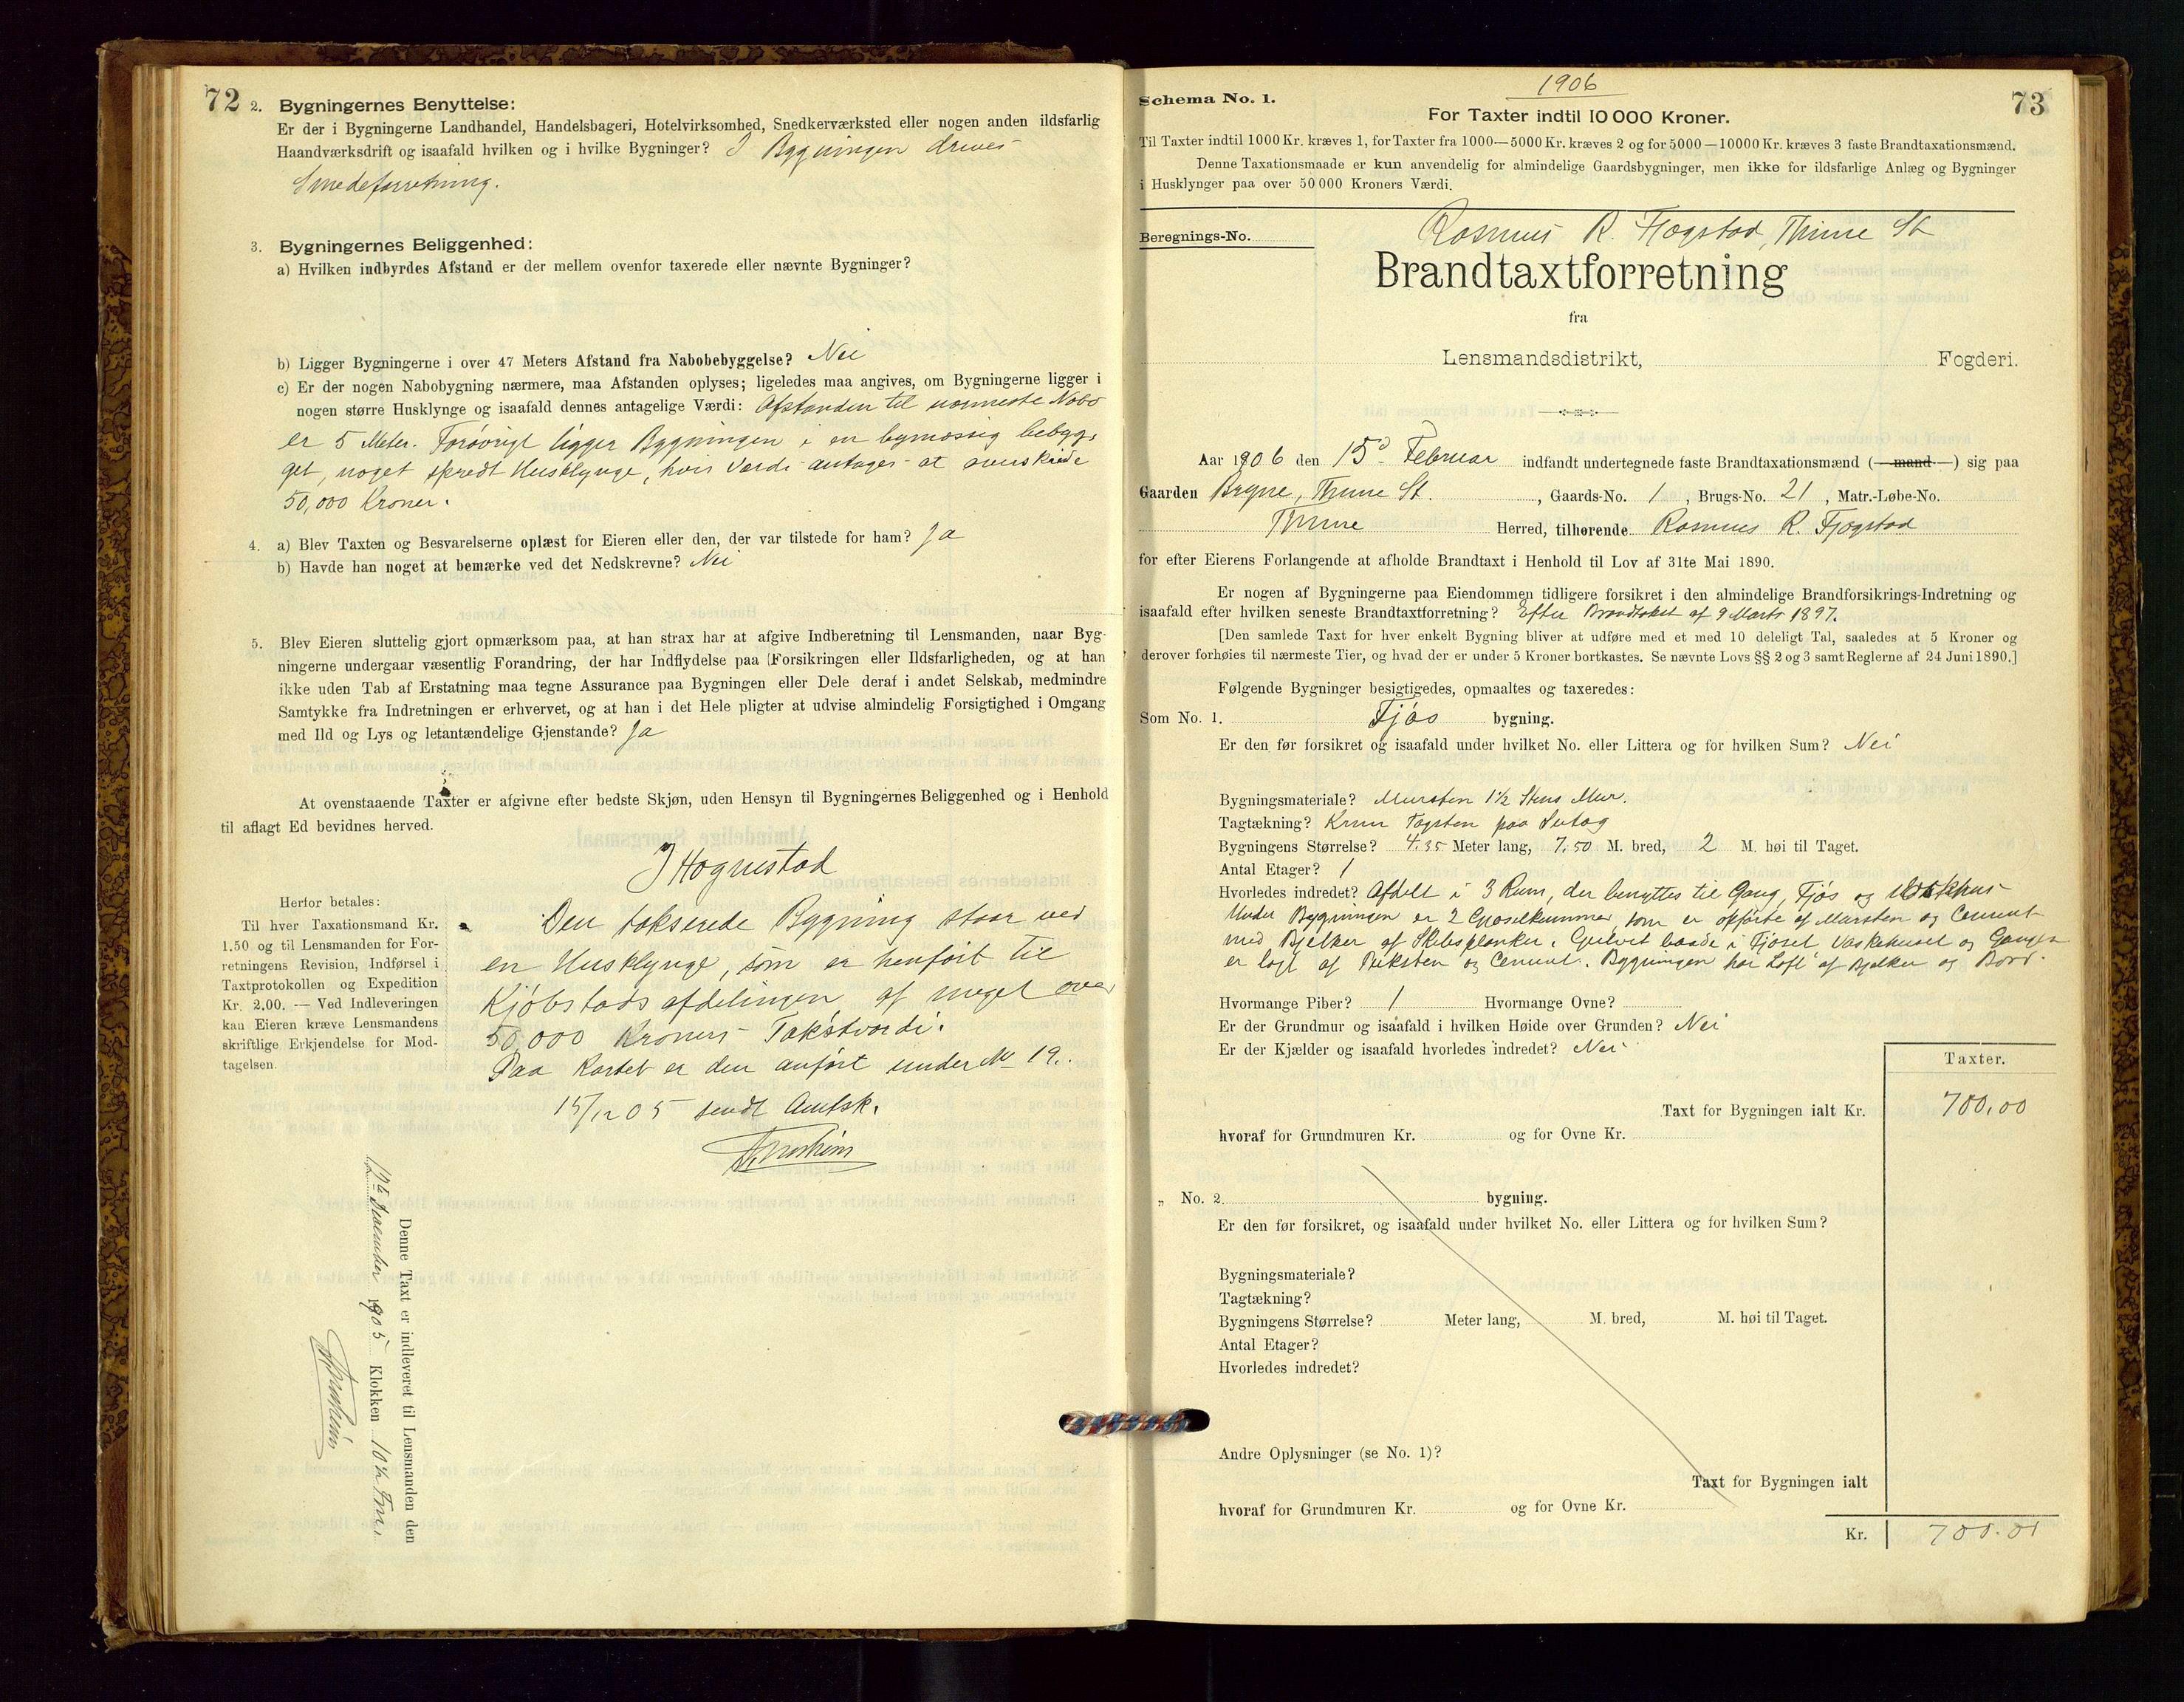 72
2. Bygningernes Benyttelse:
Er der i Bygningerne Landhandel, Handelsbageri, Hotelvirksomhed, Snedkerværksted eller nogen anden ildsfarlig
Haandværksdrift og isaafald hvilken og i hvilke Bygninger? I Bygningen drives
Smedeforretning.
3. Bygningernes Beliggenhed:
a) Hvilken indbyrdes Afstand er der mellem ovenfor taxerede eller nævnte Bygninger?
b) Ligger Bygningerne i over 47 Meters Afstand fra Nabobebyggelse? Nei
c) Er der nogen Nabobygning nærmere, maa Afstanden oplyses; ligeledes maa angives, om Bygningerne ligger i
nogen større Husklynge og isaafald dennes antagelige Værdi: Afstanden til nærmeste Nabo
er 5 Meter. Forøvrigt ligger Bygningen i en bymæssig bebyg-
get, noget spredt Husklynge, hvis Værdi antages at overskride
50,000 Kroner.
4. a) Blev Taxten og Besvarelserne oplæst for Eieren eller den, der var tilstede for ham? Ja
b) Havde han noget at bemærke ved det Nedskrevne? Nei
5. Blev Eieren sluttelig gjort opmærksom paa, at han strax har at afgive Indberetning til Lensmanden, naar Byg-
ningerne undergaar væsentlig Forandring, der har Indflydelse paa Forsikringen eller Ildsfarligheden, og at han
ikke uden Tab af Erstatning maa tegne Assurance paa Bygningen eller Dele deraf i andet Selskab, medmindre
Samtykke fra Indretningen er erhvervet, og at han i det Hele pligter at udvise almindelig Forsigtighed i Omgang
med Ild og Lys og letantændelige Gjenstande? Ja
At ovenstaaende Taxter er afgivne efter bedste Skjøn, uden Hensyn til Bygningernes Beliggenhed og i Henhold
til aflagt Ed bevidnes herved.
J Hognestad
Herfor betales:
Til hver Taxationsmand Kr.
1.50 og til Lensmanden for For-
retningens Revision, Indførsel i
Taxtprotokollen og Expedition
Kr. 2.00. — Ved Indleveringen
kan Eieren kræve Lensmandens
skriftlige Erkjendelse for Mod-
tagelsen.
Den takserede Bygning staar ved
en Husklynge, som er henført til
Kjøbstadsafdelingen af meget over
50,000 Kroners Takstværdi.
Paa Kartet er den anført under No 19.
15/12 05 sendt Amtsk.
Denne Taxt er indleveret til Lensmanden den
12te December 1905 Klokken 10½ Fm.
73
1906
Schema No. 1.
For Taxter indtil 10 000 Kroner.
Til Taxter indtil 1000 Kr. kræves 1, for Taxter fra 1000—5000 Kr. kræves 2 og for 5000—10000 Kr. kræves 3 faste Brandtaxationsmænd.
Denne Taxationsmaade er kun anvendelig for almindelige Gaardsbygninger, men ikke for ildsfarlige Anlæg og Bygninger
i Husklynger paa over 50 000 Kroners Værdi.
Beregnings-No.
Rasmus R. Fjogstad, Thime St
Brandtaxtforretning
fra
Lensmandsdistrikt, Fogderi.
Aar 1906 den 15d Februar indfandt undertegnede faste Brandtaxationsmænd (—mand—) sig paa
Gaarden Bryne, Thime St. , Gaards-No. 1 , Brugs-No. 21 , Matr.-Løbe-No.
Thime Herred, tilhørende Rasmus R. Fjogstad
for efter Eierens Forlangende at afholde Brandtaxt i Henhold til Lov af 31te Mai 1890.
Er nogen af Bygningerne paa Eiendommen tidligere forsikret i den almindelige Brandforsikrings-Indretning og
isaafald efter hvilken seneste Brandtaxtforretning? Efter Brandtakst af 9 Marts 1897.
[Den samlede Taxt for hver enkelt Bygning bliver at udføre med et med 10 deleligt Tal, saaledes at 5 Kroner og
derover forhøies til nærmeste Tier, og hvad der er under 5 Kroner bortkastes. Se nævnte Lovs §§ 2 og 3 samt Reglerne af 24 Juni 1890.]
Følgende Bygninger besigtigedes, opmaaltes og taxeredes:
Som No. 1. Fjøs bygning.
Er den før forsikret og isaafald under hvilket No. eller Littera og for hvilken Sum? Nei
Bygningsmateriale? Mursten 1½ Stens Mur.
Tagtækning? Krum Tagsten paa Sutag
Bygningens Størrelse? 4.35 Meter lang, 7.50 M. bred, 2 M. høi til Taget.
Antal Etager? 1
Hvorledes indredet? Afdelt i 3 Rum, der benyttes til Gang, Fjøs og
Under Bygningen er 2 som er opførte af Mursten og Cement
med Bjelker af Skibsplanker. Gulvet baade i Fjøset Vaskehuset og Gangen
er lagt af Cement. Bygningen har Loft af Bjelker og Bord.
Hvormange Piber? 1 Hvormange Ovne?
Er der Grundmur og isaafald i hvilken Høide over Grunden? Nei
Er der Kjælder og isaafald hvorledes indredet? Nei
Taxter.
Taxt for Bygningen ialt Kr. 700,00
hvoraf for Grundmuren Kr. og for Ovne Kr.
„ No. 2. bygning.
Er den før forsikret, og isaafald under hvilket No. eller Littera og for hvilken Sum?
Bygningsmateriale?
Tagtækning?
Bygningens Størrelse? Meter lang, M. bred, M. høi til Taget.
Antal Etager?
Hvorledes indredet?
Andre Oplysninger (se No. 1)?
Taxt for Bygningen ialt
hvoraf for Grundmuren Kr. og for Ovne Kr.
Kr. 700.00